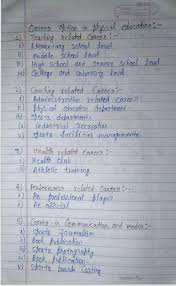 Career option in physical education:-
1) Teaching related career:-
i) Elementary school level
ii) middle school level
iii) High school and senior school level
iv) College and university level
2) Coaching related career:-
i) Administration related career:-
i) physical education department
ii) sports department
iii) industrial recreation
iv) sports facilities managements
3) Health related career:-
i) Health club
ii) Athletic training
4) Performance related career:-
i) As professional player
ii) As official
5) Career in communication and media:-
i) sports journalism
ii) Book publication
iii) sports photography
iv) Book publication
v) sports boards casting